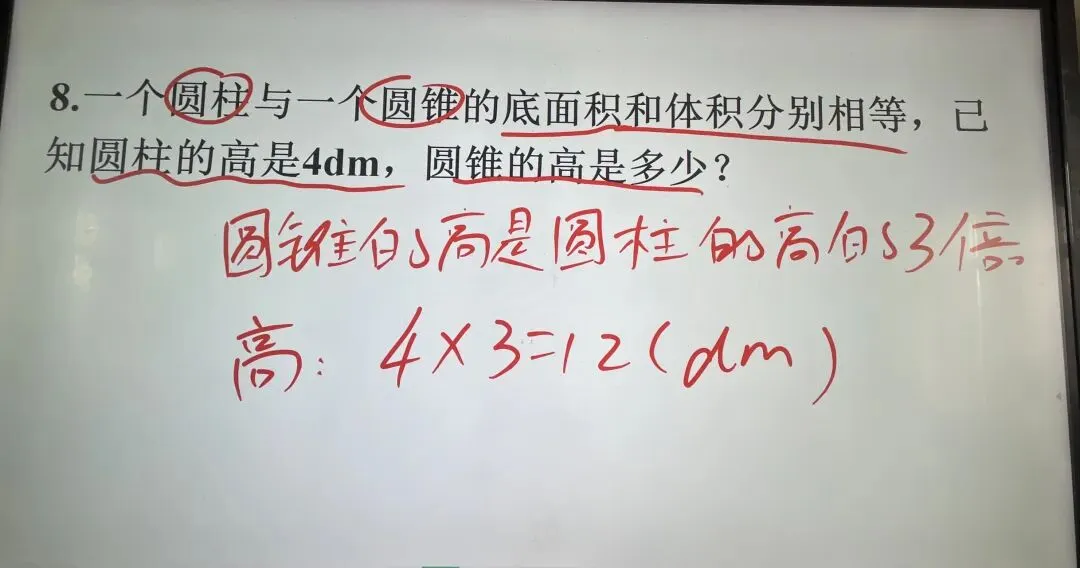 8.一个圆柱与一个圆锥的底面积和体积分别相等，已
知圆柱的高是4dm，圆锥的高是多少？
圆锥的高是圆柱的高的3倍。
高：4×3=12(dm)